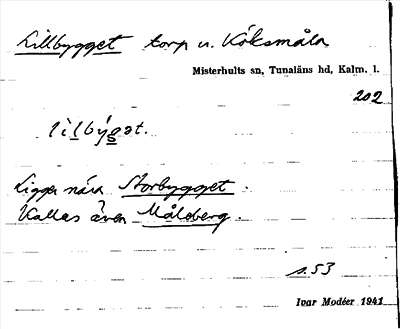 Lillbygget torp u. Köksmåla
Misterhults sn, Tunaläns hd, Kalm. l.
202
lìlbýgət.
Ligger nära Storbygget.
Kallas även Måleberg.
s. 53
Ivar Modéer 1941